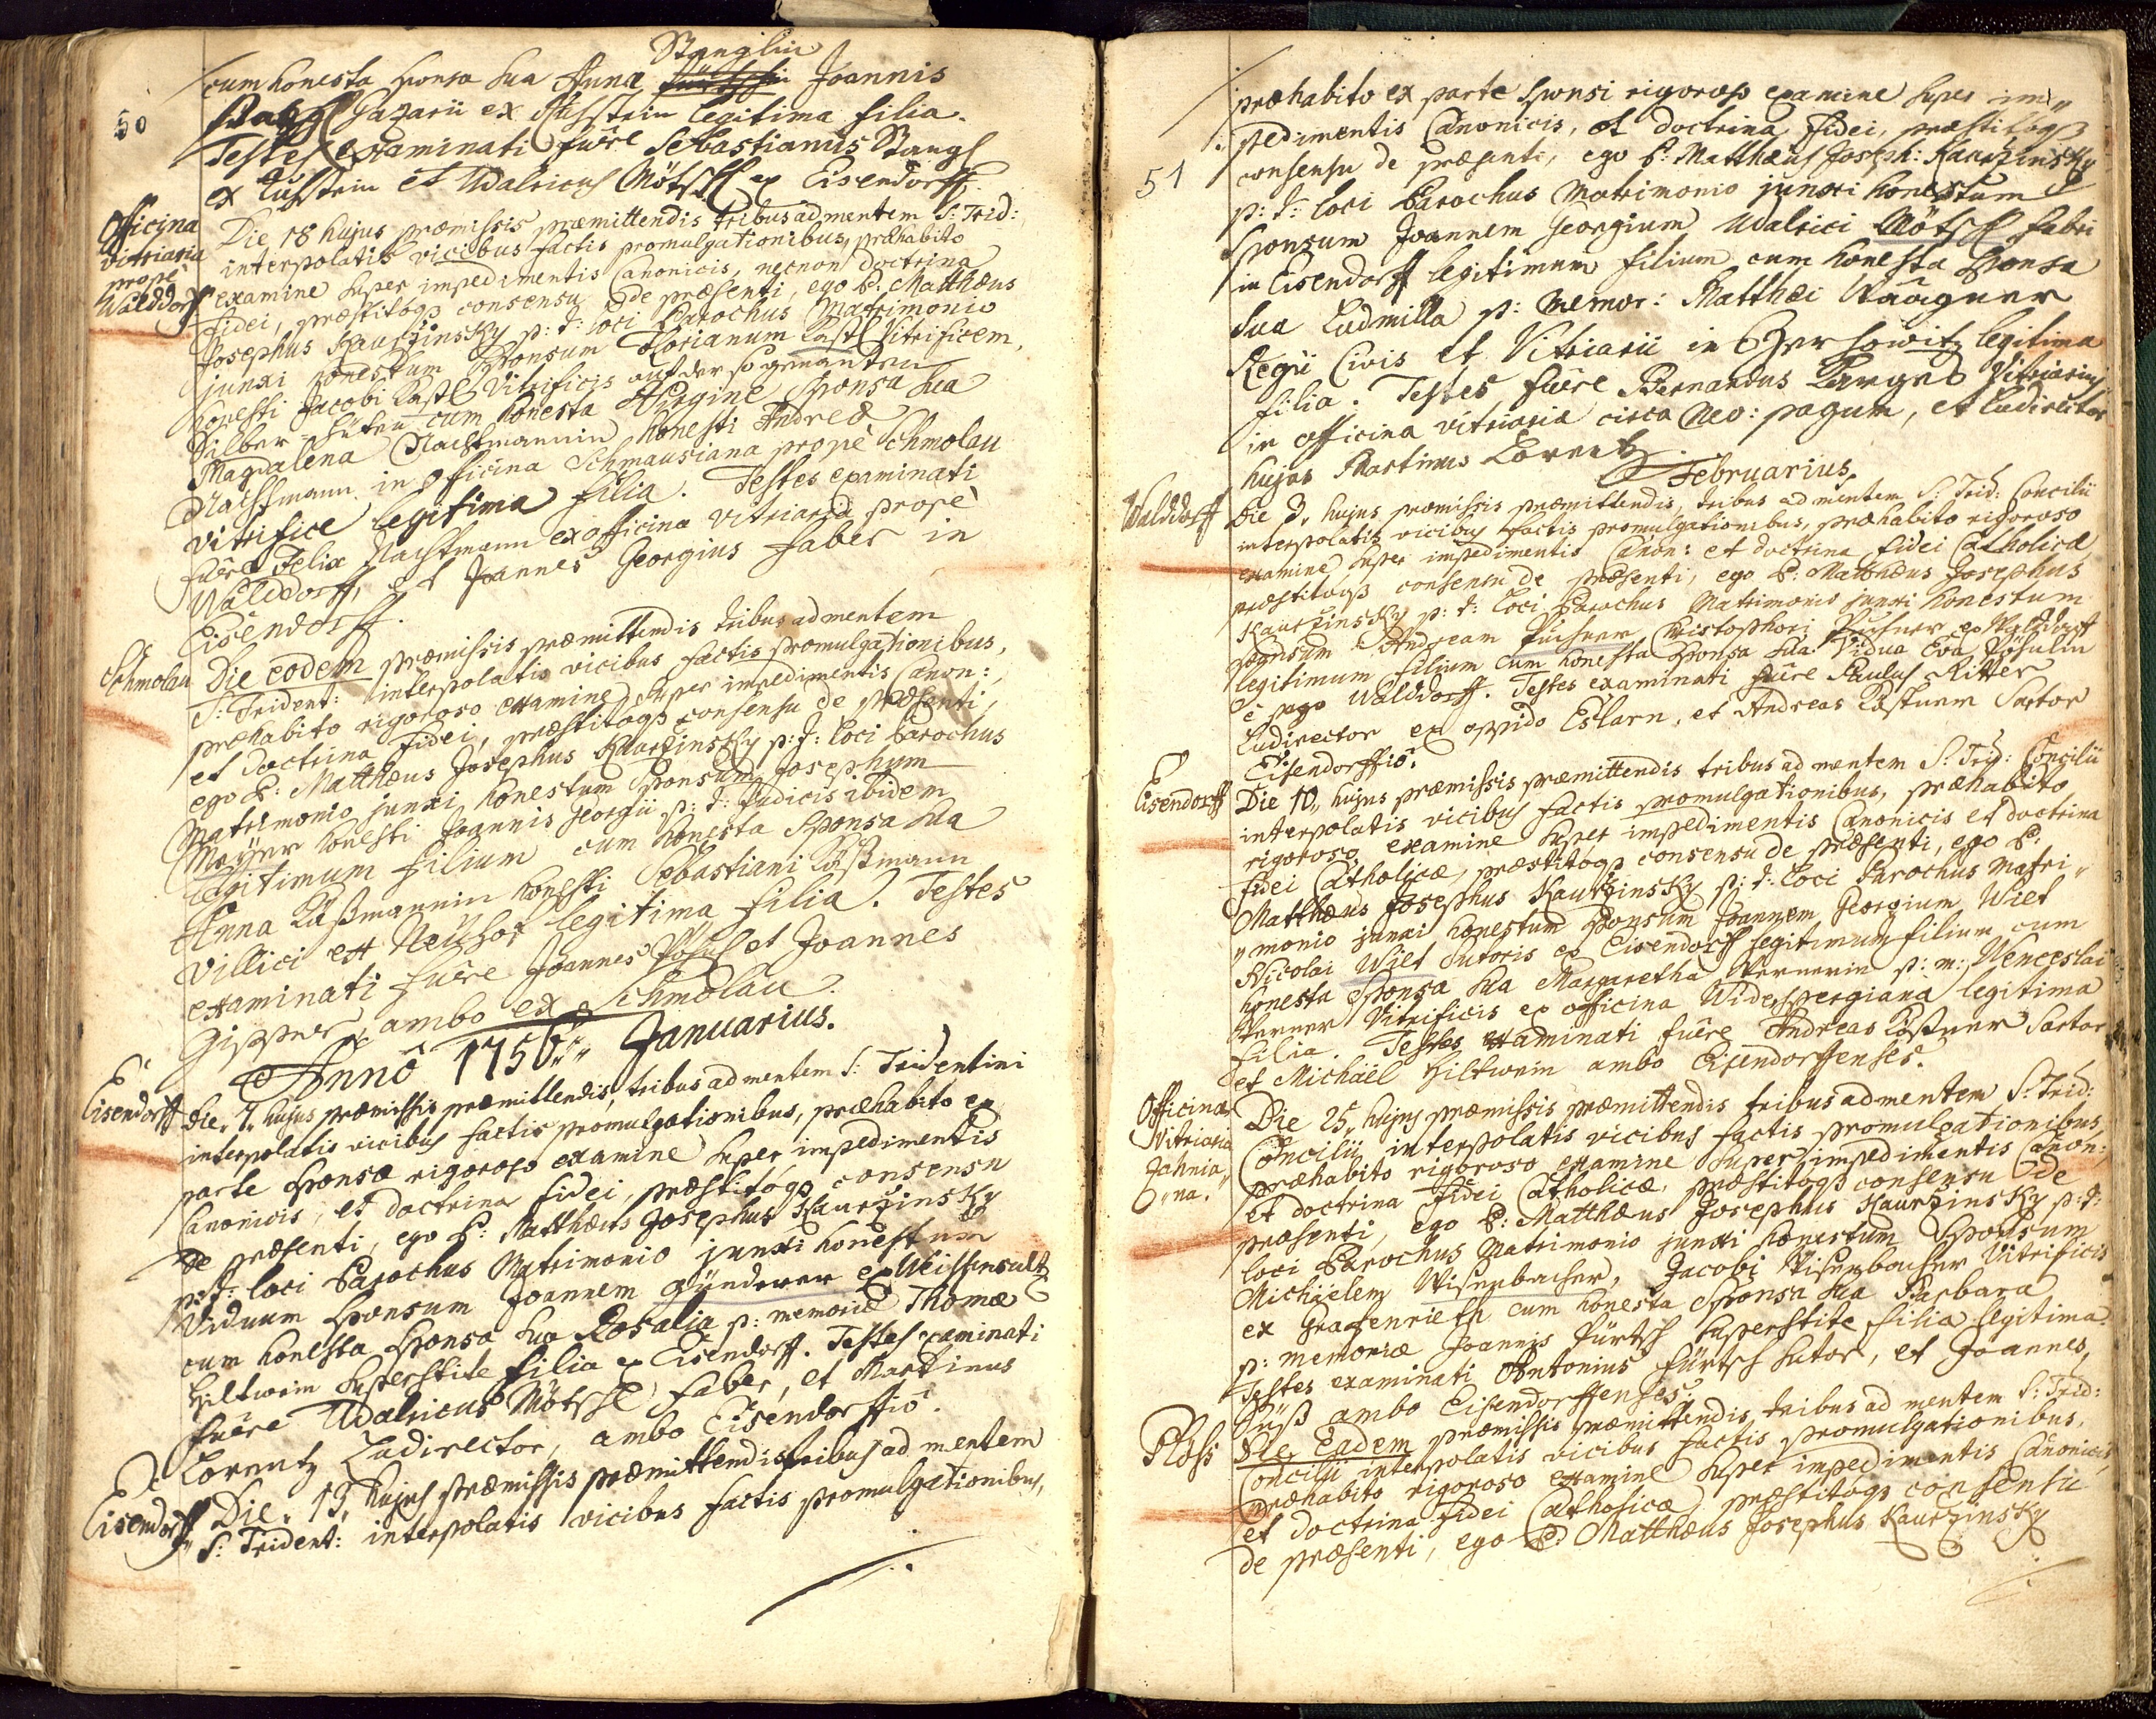 50
Stanglin
cum honesta Sponsa sua Anna Joannis
Stangl Gazarii ex legitima filia.
Testes examinati fuêre Sebastianus Stangl
ex et Udalricus Mötschl ex Eisendorff.
Officina Vitriaria propè Walddorff
Die 18 hujus præmissis præmittendis tribus ad mentem S: Trid:
interpolatis vicibus factis promulgationibus, præhabito
examine super impedimentis Canonicis, necnon doctrina
fidei, præstitoq3 consensu de præsenti, ego P: Matthæus
Josephus Kaurzinsky p: t: loci Parochus Matrimonio
junxi honestum Sponsum Florianum Kastl Vitrificem,
honesti Jacobi Kastl Vitrificis auf der so genanten
Silber-Hüten cum honesta Virgine Sponsa sua
Magdalena Nachtmannin honesti Andreæ
Nachtmann in Officina Schmausiana propè Schmolau
vitrifice legitima filia. Testes examinati
fuêre Felix Nachtmann ex officina vitriaria propè
Walddorff, et Joannes Georgius faber in
Eisendorff.
Schmolau
Die eodem præmissis præmittendis tribus ad mentem
S: Trident: interpolatis vicibus factis promulgationibus,
præhabito rigoroso examine super impedimentis Canon:,
et doctrina fidei, præstitoq3 consensu de præsenti,
ego P: Matthæus Josephus Kaurzinsky p: t: loci Parochus
Matrimonio junxi honestum Sponsum Josephum
Mayer honesti Joannis Georgii p: t: judicis ibidem
legitimum filium cum honesta Sponsa sua
Anna Päßmannin honesti Sebastiani Päßmann
Villici ex Neühof legitima filia. Testes
examinati fuêre Joannes Pösl et Joannes
Gissner, ambo ex Schmolau.
Annô 1756. Januarius.
Eisendorff
Die 7. hujus præmissis præmittendis, tribus ad mentem S: Tridentini
interpolatis vicibus factis promulgationibus, præhabito ex
parte Sponsæ rigoroso examine super impedimentis
Canonicis, et doctrina fidei, præstitoq3 consensu
de præsenti, ego P: Matthæus Josephus Kaurzinsky
p: t: loci Parochus Matrimonio junxi honestum
Viduum Sponsum Joannem Günderer ex Weissensultz
cum honesta Sponsa sua Rosalia p: memoriæ Thomæ
Hiltwein superstite filia ex Eisendorff. Testes examinati
fuêre Udalricus Mötschl faber, et Martinus
Lorentz Ludirector, ambo Eisendorffiô.
Eisendorff
Die 13. hujus præmissis præmittendis tribus ad mentem
S: Trident: interpolatis vicibus factis promulgationibus,
51
præhabito ex parte Sponsi rigoroso examine super im-
pedimentis Canonicis, et doctrina fidei, præstitoq3
consensu de præsenti, ego P: Matthæus Joseph: Kaurzinsky
p: t: loci Parochus Matrimonio junxi honestum
Sponsum Joannem Georgium Udalrici Mötschl fabri
in Eisendorff legitimum filium cum honesta Sponsa
sua Ludmilla p: memor: Matthæi
Regii Civis et Vitriarii in legitima
filia. Testes fuêre Bernardus Vitriarius
in officina vitriaria circa Neo: pagum, et Ludirector
hujas Martinus Lorentz.
Februarius.
Walddorff
Die 3. hujus præmissis præmittendis, tribus ad mentem S: Trid: Concilii
interpolatis vicibus factis promulgationibus, præhabito rigoroso
examine super impedimentis Canon: et doctrina fidei Catholicæ
præstitoq3 consensu de præsenti, ego P: Matthæus Josephus
Kaurzinsky p: t: loci Parochus Matrimonio junxi honestum
Sponsum Andream Puchner Christophori Puchner ex Walddorff
legitimum filium cum honesta Sponsa sua Vidua Eva Pösulin
è pago Walddorff. Testes examinati fuêre Paulus Ritter
Ludirector ex oppido Eslarn, et Andreas Sartor
Eisendorffiô.
Eisendorff
Die 10. hujus præmissis præmittendis tribus ad mentem S: Trid: Concilii
interpolatis vicibus factis promulgationibus, præhabito
rigoroso examine super impedimentis Canonicis et doctrina
fidei Catholicæ, præstitoq3 consensu de præsenti, ego P:
Matthæus Josephus Kaurzinsky p: t: loci Parochus Matri-
monio junxi honestum Sponsum Joannem Georgium Wilt
Nicolai Wilt Sutoris ex Eisendorff legitimum filium cum
honesta Sponsa sua Margaretha p: m: Wenceslai
Vitrificis ex officina legitima
filia. Testes examinati fuêre Andreas Sartor
et Michaël Hiltwein ambo Eisendorffenses.
Officina Vitriaria Jahnia- na.
Die 25. hujus præmissis præmittendis tribus ad mentem S: Trid:
Concilii interpolatis vicibus factis promulgationibus,
præhabito rigoroso examine super impedimentis Canon:
et doctrina fidei Catholicæ, præstitoq3 consensu de
præsenti, ego P: Matthæus Josephus Kaurzinsky p: t:
loci Parochus Matrimonio junxi honestum Sponsum
Michaëlem Wisenbacher, Jacobi Wisenbacher Vitrificis
ex Grafenrieth cum honesta Sponsa sua Barbara
p: memoriæ Joannis Fürtsch superstite filia legitima.
Testes examinati Antonius Fürtsch Sutor, et Joannes
Süß ambo Eisendorffenses.
Ploss
Die Eadem præmissis præmittendis, tribus ad mentem S: Trid:
Concilii interpolatis vicibus factis promulgationibus,
præhabito rigoroso examine super impedimentis Canonicis,
et doctrina fidei Catholicæ præstitoq3 consensu
de præsenti, ego P: Matthæus Josephus Kaurzinsky